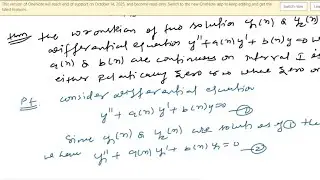 This version of OneNote will reach end of support on October 14, 2025, and become read-only. Switch to the new OneNote app to keep editing and get the latest features.
Thm the wronskian of two solution y₁(x) & y₂(x)
differential equation y''+a(x)y'+b(x)y=0 w
a(x) & b(x) are continuous on interval I is
either identically zero or zero or
Pf consider differential equation
y'' + a(x) y' + b(x) y=0 —①
Since y₁(x) & y₂(x) are solution of ① then
we have y₁'' + a(x) y₁' + b(x) y₁ = 0 —②